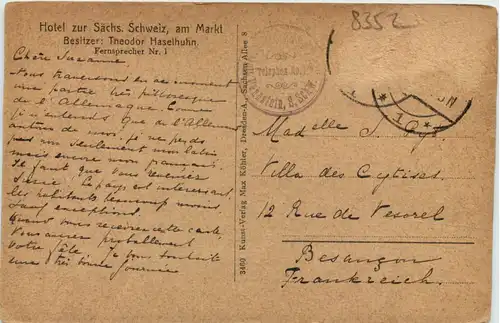 8352
Hotel zur Sächs. Schweiz, am Markt
Besitzer: Theodor Haselhuhn.
Fernsprecher Nr. 1
Chère Suzanne.
Nous traversons en ce moment
une partie très pittoresque
de l'Allemagne. Comme
je n'entends que de l'Allemand
autour de moi, je ne perds
pas non seulement mon latin
mais encore mon
Il faut que vous reveniez
Le pays est intéressant
les habitants beaucoup moins
sauf exceptions.
Quand vous recevrez cette carte,
vous aurez probablement
votre fête je vous souhaite
une très bonne journée
3460 Kunst-Verlag Max Köhler, Dresden-A., Sachsen Allee 8
Telephon No. 1
Madelle S.
Villa des Cytises
12 Rue de Vesoul
Besançon
Frankreich.